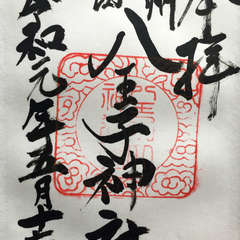 奉拝
州
八王子神社
令和元年五月十